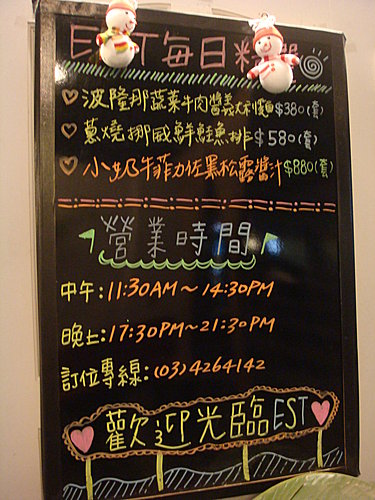 EST每日精選
波隆那蔬菜牛肉醬義大利麵$380(套)
蔥燒挪威鮮鮭魚排$580(套)
小奶牛菲力佐黑松露醬汁$880(套)
營業時間
中午:11:30AM～14:30PM
晚上:17:30PM～21:30PM
訂位專線:(03)4264142
歡迎光臨EST